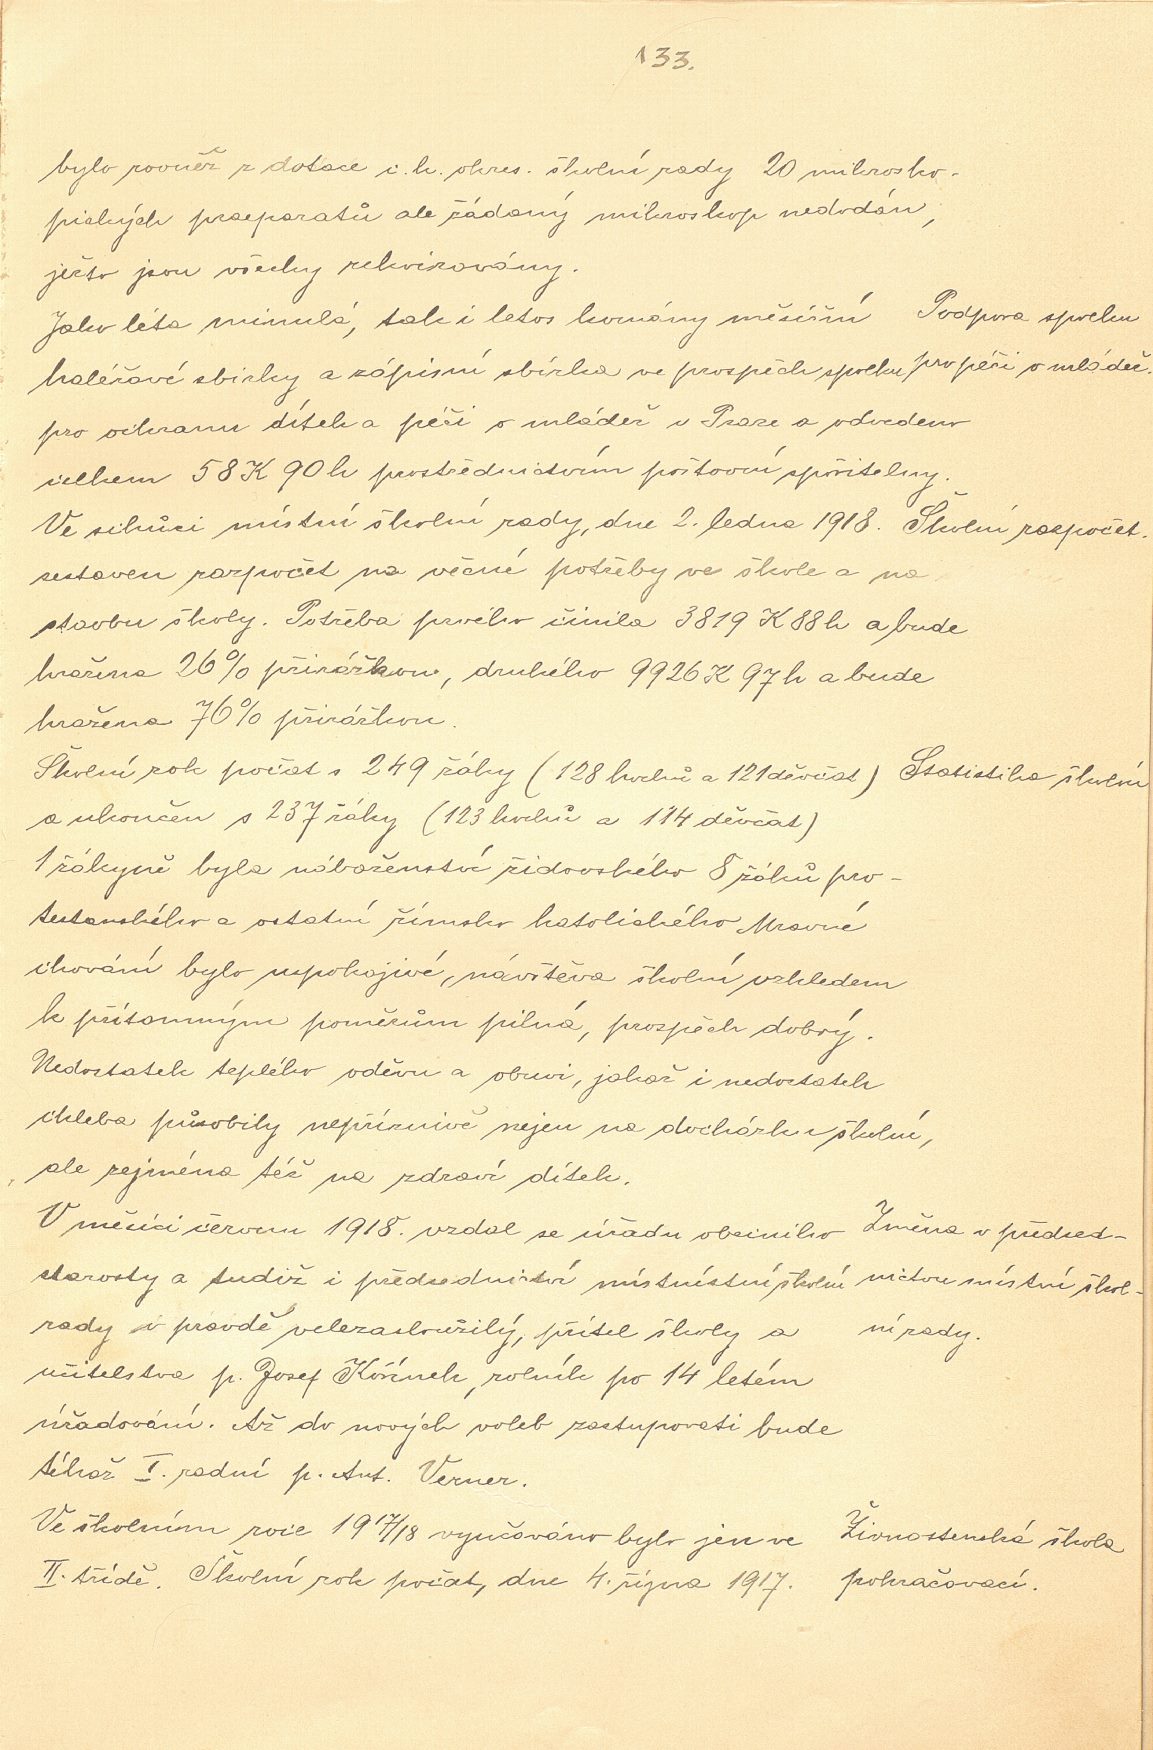 133.
bylo rovněž z dotace c. k. okres. školní rady 20 mikrosko-
pických praeparatů ale žádaný mikroskop nedodán,
ježto jsou všechny rekvirovány.
Jako léta minulá, tak i letos konány měsíční
Podpora spolku
haléřové sbírky a zápisní sbírka ve prospěch spolku
pro péči o mládež.
pro ochranu dítek a péči o mládež v Praze a odvedeno
celkem 58 K 90 h prostřednictvím poštovní spořitelny.
Ve schůzi místní školní rady, dne 2. ledna 1918.
Školní rozpočet.
sestaven rozpočet na věcné potřeby ve škole a na
stavbu školy. Potřeba prvého činila 3819 K 88 h a bude
hražena 26% přirážkou, druhého 9926 K 97 h a bude
hražena 76% přirážkou.
Školní rok počat s 249 žáky (128 hochů a 121 děvčat)
Statistika školní
a ukončen s 237 žáky (123 hochů a 114 děvčat)
1 žákyně byla náboženství židovského 8 žáků pro-
testanského a ostatní římsko katolického Mravné
chování bylo uspokojivé, návštěva školní vzhledem
k přítomným poměrům pilná, prospěch dobrý.
Nedostatek teplého oděvu a obuvi, jakož i nedostatek
chleba působily nepříznivě nejen na docházku školní,
ale zejména též na zdraví dítek.
V měsíci červnu 1918. vzdal se úřadu obecního
Změna v předsed-
starosty a tudíž i předsednictví místnístní školní
nictvu místní škol-
rady v pravdě velezasloužilý, přítel školy a
ní rady.
učitelstva p. Josef Kořínek, rolník po 14 letém
úřadování. Až do nových voleb zastupovati bude
téhož I. radní p. Ant. Verner.
Ve školním roce 1917/18 vyučováno bylo jen ve
Živnostenská škola
II. třídě. Školní rok počat, dne 4. října 1917.
pokračovací.